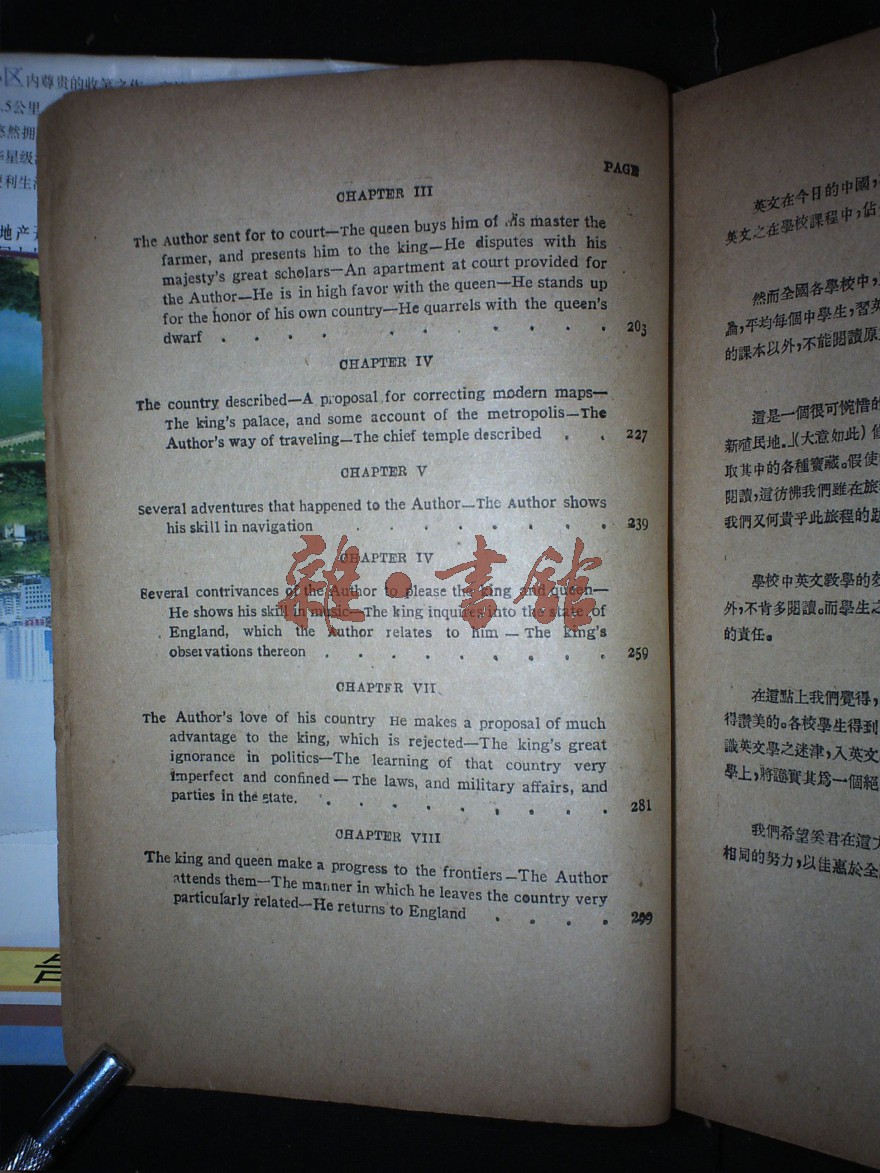 区内尊贵的收笔之作
.5公里
悠然拥
华星级
便利生活
地产
PAGE
CHAPTER III
The Author sent for to court—The queen buys him of his master the
farmer, and presents him to the king—He disputes with his
majesty's great scholars—An apartment at court provided for
the Author—He is in high favor with the queen—He stands up
for the honor of his own country—He quarrels with the queen's
dwarf . . . . . . . . . 203
CHAPTER IV
The country described—A proposal for correcting modern maps—
The king's palace, and some account of the metropolis—The
Author's way of traveling—The chief temple described . . 227
CHAPTER V
Several adventures that happened to the Author—The Author shows
his skill in navigation . . . . . . . 239
CHAPTER IV
Several contrivances of the Author to please the king and queen—
He shows his skill in music—The king inquires into the state of
England, which the Author relates to him — The king's
observations thereon . . . . . . . . 259
CHAPTER VII
The Author's love of his country He makes a proposal of much
advantage to the king, which is rejected—The king's great
ignorance in politics—The learning of that country very
imperfect and confined — The laws, and military affairs, and
parties in the state. . . . . . . . . 281
CHAPTER VIII
The king and queen make a progress to the frontiers—The Author
attends them—The manner in which he leaves the country very
particularly related—He returns to England . . . . 299
雜·書館
英文在今日的中國,
英文之在學校課程中,佔
然而全國各學校中,
論,平均每個中學生,習英
的課本以外,不能閱讀原
這是一個很可惋惜的
新殖民地。」(大意如此)
取其中的各種寶藏。假使
閱讀,這彷彿我們雖在旅
我們又何貴乎此旅程的
學校中英文敎學的
外,不肯多閱讀。而學生之
的責任。
在這點上我們覺得,
得讚美的。各校學生得到
識英文學之迷津,入英文
學上,將證實其爲一個絕
我們希望奚君在這
相同的努力,以佳惠於全